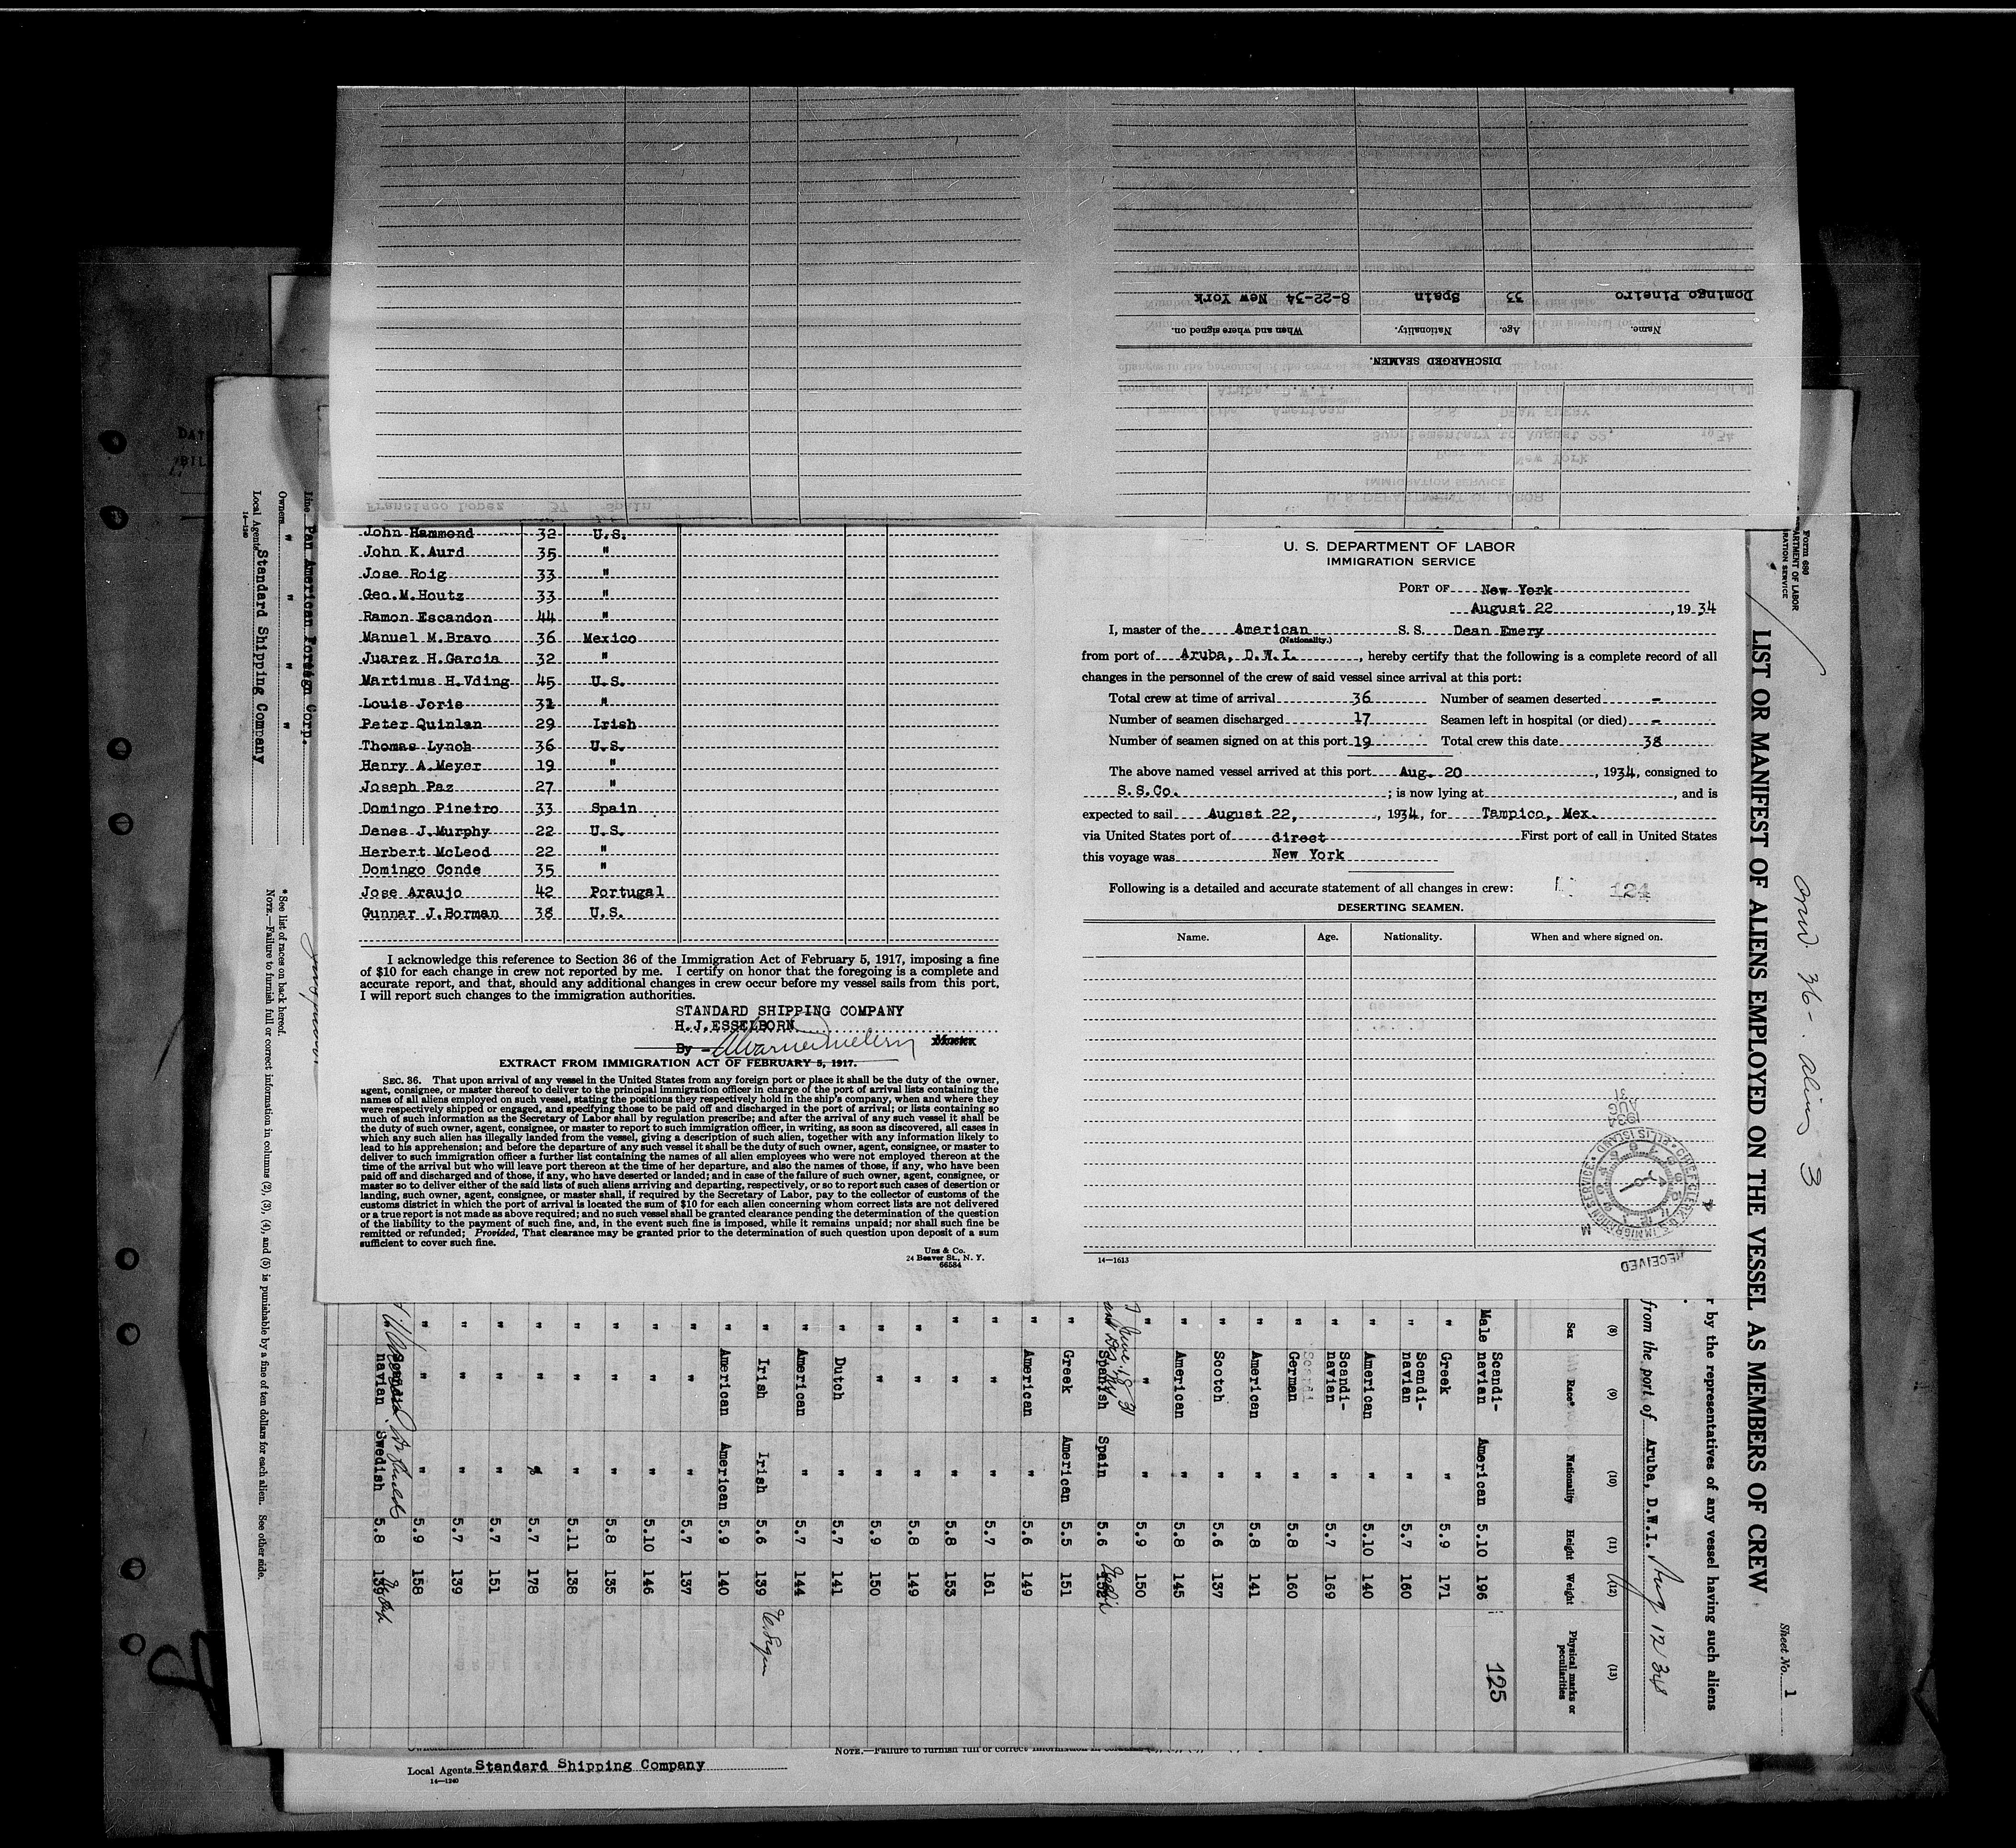 Domingo Pineiro 33 Spain 8-22-34 New York
Name. Age. Nationality. When and where signed on.
DISCHARGED SEAMEN.
Francisco Lopez 37 Spain
John Hammond 32 U.S.
John K.Aurd 35 "
Jose Roig 33 "
Geo.M.Houtz 33 "
Ramon Escandon 44 "
Manuel M.Bravo 36 Mexico
Juarez H.Garcia 32 "
Martinus H.Vding 45 U.S.
Louis Joris 31 "
Peter Quinlan 29 Irish
Thomas Lynch 36 U.S.
Henry A.Meyer 19 "
Joseph Paz 27 "
Domingo Pineiro 33 Spain
Denes J.Murphy 22 U.S.
Herbert McLeod 22 "
Domingo Conde 35 "
Jose Araujo 42 Portugal
Gunnar J.Borman 38 U.S.
I acknowledge this reference to Section 36 of the Immigration Act of February 5, 1917, imposing a fine
of $10 for each change in crew not reported by me. I certify on honor that the foregoing is a complete and
accurate report, and that, should any additional changes in crew occur before my vessel sails from this port,
I will report such changes to the immigration authorities.
STANDARD SHIPPING COMPANY
H.J.ESSELBORN
By Master
EXTRACT FROM IMMIGRATION ACT OF FEBRUARY 5, 1917.
SEC. 36. That upon arrival of any vessel in the United States from any foreign port or place it shall be the duty of the owner,
agent, consignee, or master thereof to deliver to the principal immigration officer in charge of the port of arrival lists containing the
names of all aliens employed on such vessel, stating the positions they respectively hold in the ship's company, when and where they
were respectively shipped or engaged, and specifying those to be paid off and discharged in the port of arrival; or lists containing so
much of such information as the Secretary of Labor shall by regulation prescribe; and after the arrival of any such vessel it shall be
the duty of such owner, agent, consignee, or master to report to such immigration officer, in writing, as soon as discovered, all cases in
which any such alien has illegally landed from the vessel, giving a description of such alien, together with any information likely to
lead to his apprehension; and before the departure of any such vessel it shall be the duty of such owner, agent, consignee, or master to
deliver to such immigration officer a further list containing the names of all alien employees who were not employed thereon at the
time of the arrival but who will leave port thereon at the time of her departure, and also the names of those, if any, who have been
paid off and discharged and of those, if any, who have deserted or landed; and in case of the failure of such owner, agent, consignee, or
master so to deliver either of the said lists of such aliens arriving and departing, respectively, or so to report such cases of desertion or
landing, such owner, agent, consignee, or master shall, if required by the Secretary of Labor, pay to the collector of customs of the
customs district in which the port of arrival is located the sum of $10 for each alien concerning whom correct lists are not delivered
or a true report is not made as above required; and no such vessel shall be granted clearance pending the determination of the question
of the liability to the payment of such fine, and, in the event such fine is imposed, while it remains unpaid; nor shall such fine be
remitted or refunded; Provided, That clearance may be granted prior to the determination of such question upon deposit of a sum
sufficient to cover such fine.
Uns & Co.
24 Beaver St., N. Y.
66584
U. S. DEPARTMENT OF LABOR
IMMIGRATION SERVICE
PORT OF New York
August 22, 1934
I, master of the American S. S. Dean Emery
(Nationality.)
from port of Aruba, D.W.I., hereby certify that the following is a complete record of all
changes in the personnel of the crew of said vessel since arrival at this port:
Total crew at time of arrival 36 Number of seamen deserted -
Number of seamen discharged 17 Seamen left in hospital (or died) -
Number of seamen signed on at this port 19 Total crew this date 38
The above named vessel arrived at this port Aug. 20, 1934, consigned to
S.S.Co. ; is now lying at , and is
expected to sail August 22, , 1934, for Tampico, Mex.
via United States port of direct First port of call in United States
this voyage was New York
Following is a detailed and accurate statement of all changes in crew: 124
DESERTING SEAMEN.
Name. Age. Nationality. When and where signed on.
14—1613
RECEIVED
1934 AUG
CHIEF CLERK, U.S. IMMIGRATION SERVICE, ELLIS ISLAND
Form 680
LIST OR MANIFEST OF ALIENS EMPLOYED ON THE VESSEL AS MEMBERS OF CREW
Sheet No. 1
36 - aliens 3
r by the representatives of any vessel having such aliens
from the port of Aruba, D.W.I. Aug 12
(8) (9) (10) (11) (12) (13)
Sex Race* Nationality Height Weight Physical marks or peculiarities
Male Scandi-navian American 5.10 196 125
" Greek " 5.9 171
" Scandi-navian " 5.7 160
" American " 5.10 140
" Scandi-navian " 5.7 169
" German " 5.8 160
" American " 5.8 141
" Scotch " 5.6 137
" American " 5.8 145
" " " 5.9 150
Spanish Spain 5.6 152
" Greek American 5.5 151
" American " 5.6 149
" " " 5.7 161
" " " 5.8 153
" " " 5.8 149
" " " 5.9 150
" Dutch " 5.7 141
" American " 5.7 144
" Irish Irish 5.6 139
" American American 5.9 140
" " " 5.7 137
" " " 5.10 146
" " " 5.8 135
" " " 5.11 138
" " " 5.7 178
" " " 5.7 151
" " " 5.7 139
" " " 5.9 158
navian Swedish 5.8 139
Line Pan American Foreign Corp.
Owners " " " "
Local Agents Standard Shipping Company
14—1240
*See list of races on back hereof.
NOTE.—Failure to furnish full or correct information in columns (2), (3), (4), and (5) is punishable by a fine of ten dollars for each alien. See other side.
NOTE.—Failure to furnish full or correct information
Local Agents Standard Shipping Company
14—1240